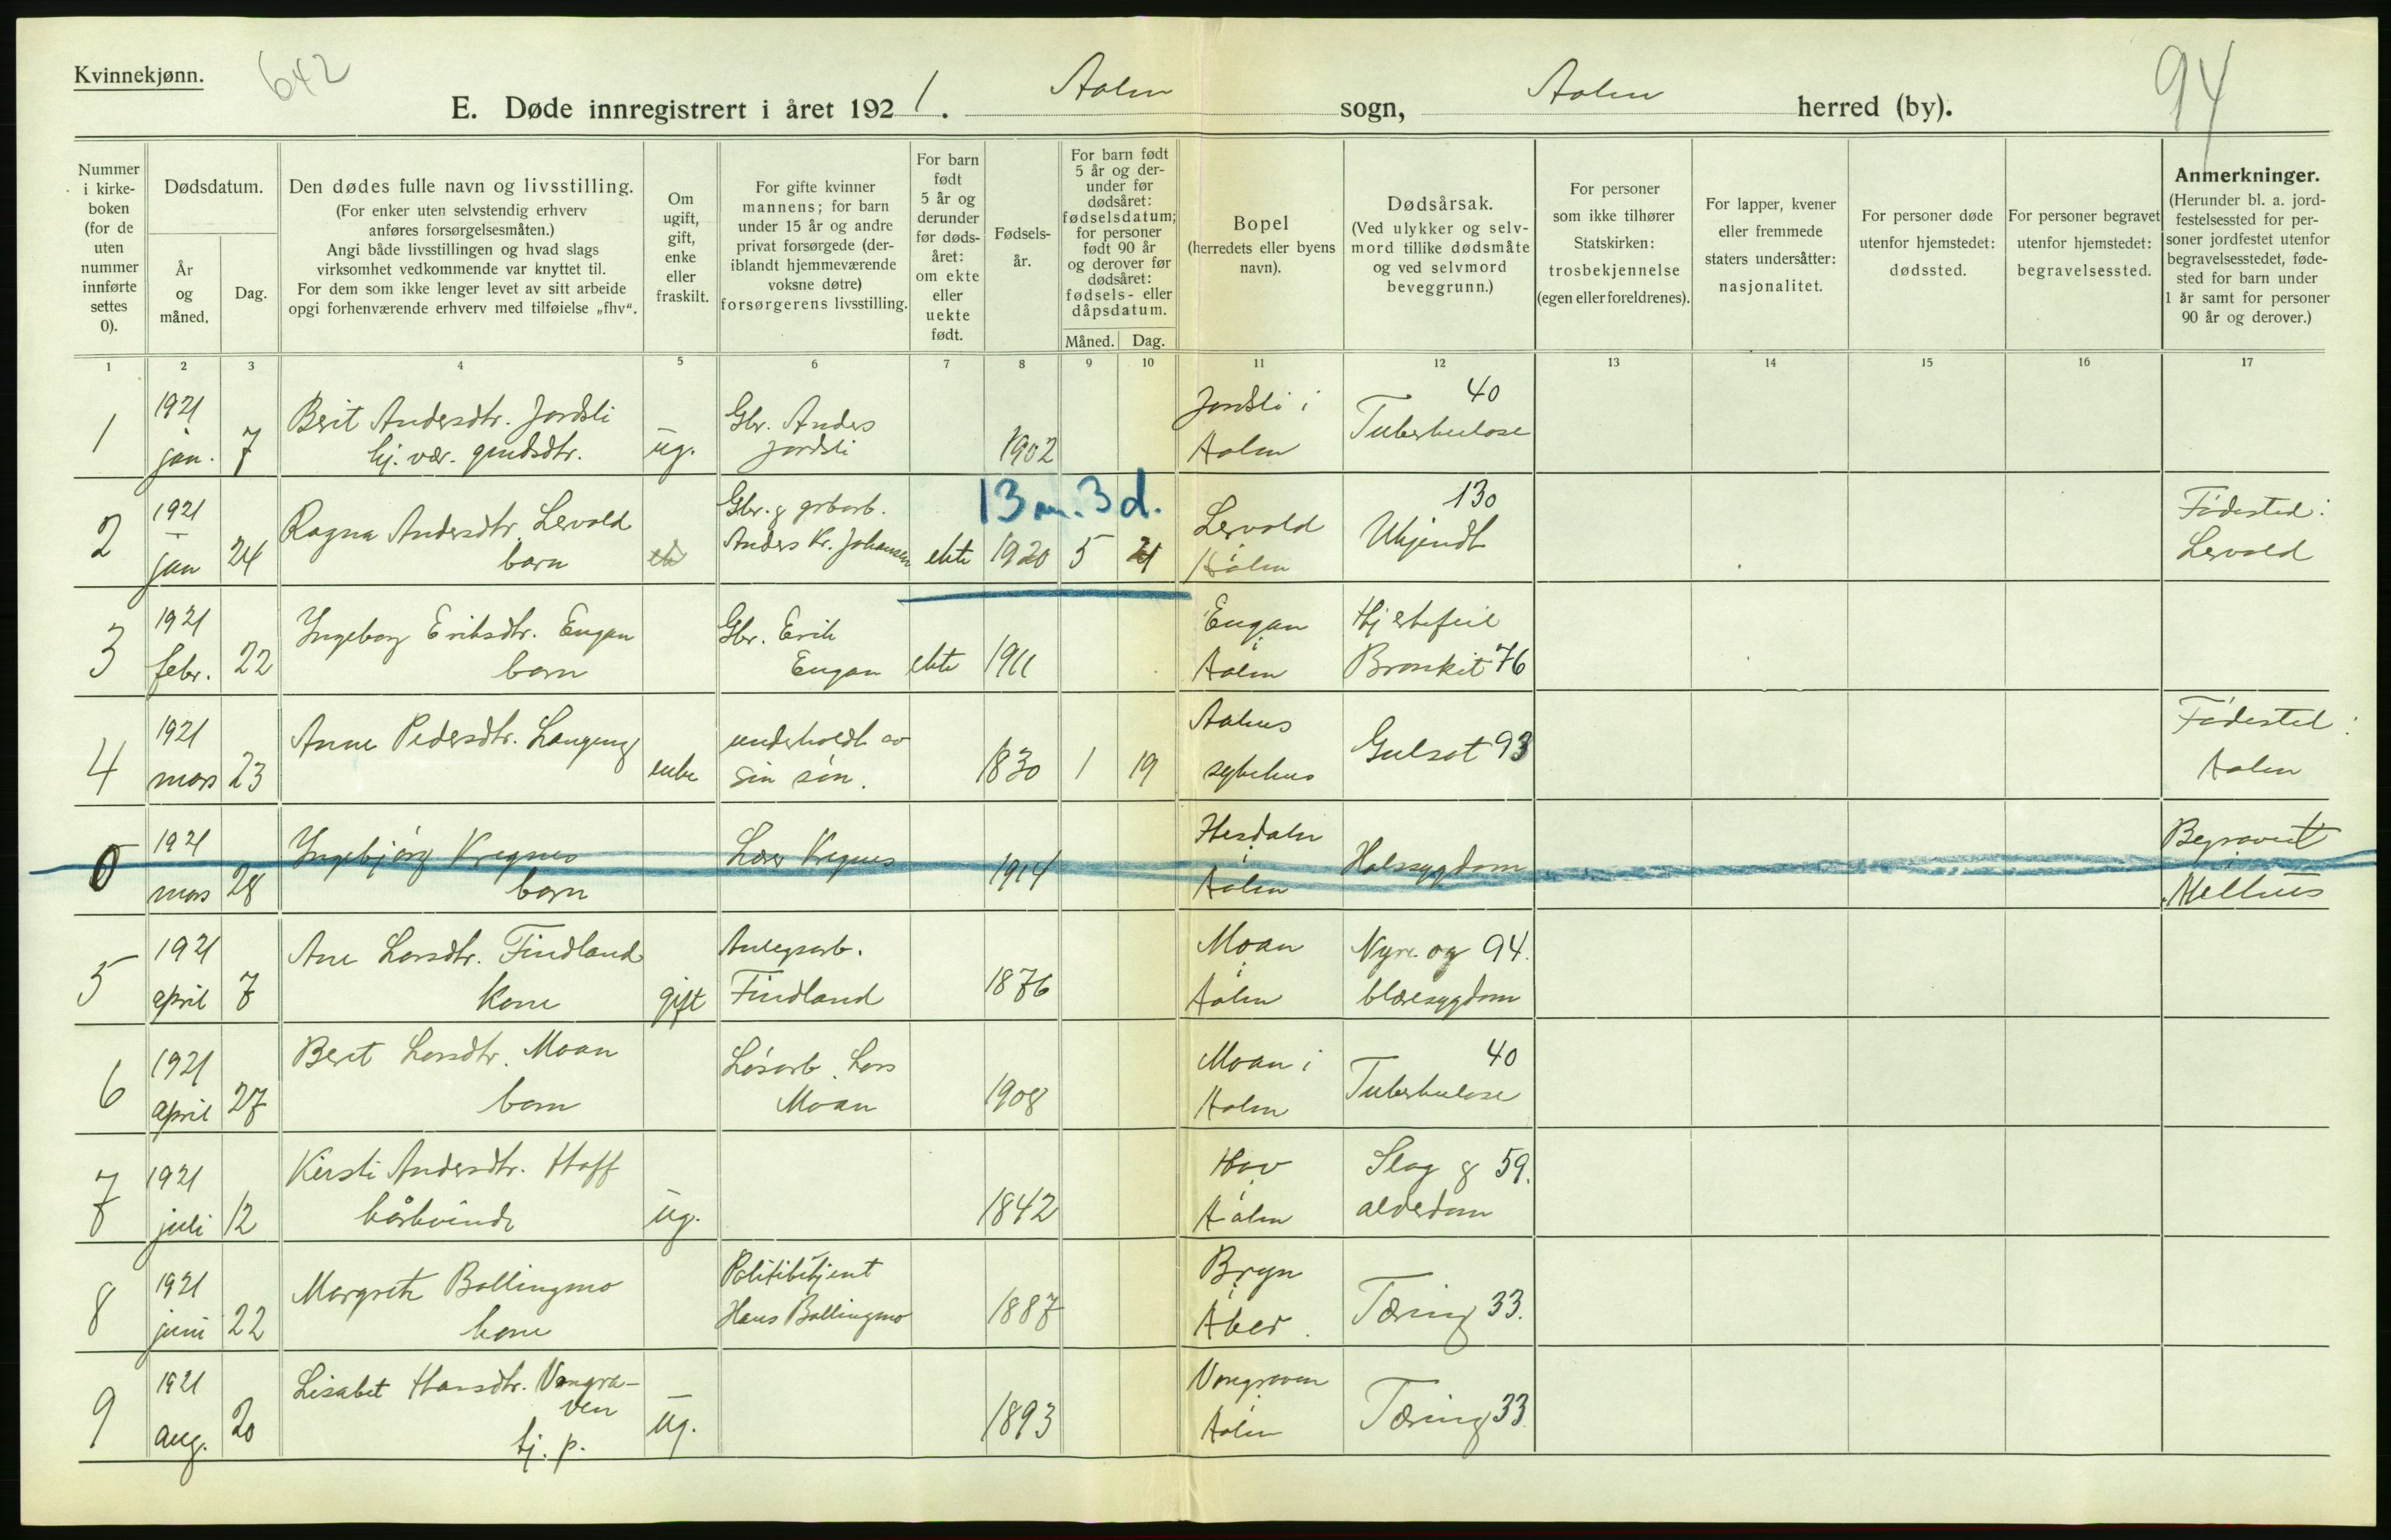 Kvinnekjønn.
642
94
E. Døde innregistrert i året 1921. Aalen sogn, Aalen herred (by).
Nummer i kirke-boken (for de uten nummer innførte settes 0).
Dødsdatum.
År og måned.
Dag.
Den dødes fulle navn og livsstilling.
(For enker uten selvstendig erhverv anføres forsørgelsesmåten.)
Angi både livsstillingen og hvad slags virksomhet vedkommende var knyttet til.
For dem som ikke lenger levet av sitt arbeide opgi forhenværende erhverv med tilføielse „fhv“.
Om ugift, gift, enke eller fraskilt.
For gifte kvinner mannens; for barn under 15 år og andre privat forsørgede (der-iblandt hjemmeværende voksne døtre) forsørgerens livsstilling.
For barn født 5 år og derunder før døds-året: om ekte eller uekte født.
Fødsels-år.
For barn født 5 år og der-under før dødsåret: fødselsdatum; for personer født 90 år og derover før dødsåret: fødsels- eller dåpsdatum.
Måned.
Dag.
Bopel (herredets eller byens navn).
Dødsårsak.
(Ved ulykker og selv-mord tillike dødsmåte og ved selvmord beveggrunn.)
For personer som ikke tilhører Statskirken: trosbekjennelse (egen eller foreldrenes).
For lapper, kvener eller fremmede staters undersåtter: nasjonalitet.
For personer døde utenfor hjemstedet: dødssted.
For personer begravet utenfor hjemstedet: begravelsessted.
Anmerkninger.
(Herunder bl. a. jord-festelsessted for per-soner jordfestet utenfor begravelsesstedet, føde-sted for barn under 1 år samt for personer 90 år og derover.)
1 2 3 4 5 6 7 8 9 10 11 12 13 14 15 16 17
1 1921 jan. 7 Berit Andersdtr. Jordsli hj. vær. grudsdtr. ug. Gbr. Anders Jordsli 1902 Jordsli i Aalen 40 Tuberkulose
13 m. 3 d.
2 1921 jan 24 Ragna Andersdtr. Lervold barn Gbr. & grbarb. Anders Kr. Johansen ekte 1920 5 21 Lervold i Aalen 130 Ukjendt Fødested: Lervold
3 1921 febr. 22 Ingeborg Eriksdtr. Engan barn Gbr. Erik Engan ekte 1911 Engan i Aalen Hjertefeil Bronkit 76
4 1921 mars 23 Anne Pedersdtr. Langeng enke underholdt av sin søn. 1830 1 19 Aalens sykehus Gulsot 93 Fødested: Aalen
0 1921 mars 28 Ingebjørg Kregnes barn Lærer Kregnes 1914 Hesdalen i Aalen Halssygdom Begravet i Melhus
5 1921 april 7 Ane Larsdtr. Findland kone gift Anlegsarb. Findland 1876 Moan i Aalen Nyre og 94. blæresygdom
6 1921 april 27 Berit Larsdtr. Moan barn Løsarb. Lars Moan 1908 Moan i Aalen 40 Tuberkulose
7 1921 juli 12 Kirsti Andersdtr. Hoff kårkvinde ug. 1842 Hov i Aalen Slag & 59. alderdom
8 1921 juni 22 Margrete Bollingmo kone Politibetjent Hans Bollingmo 1887 Bryn i Aker. Tæring 33.
9 1921 aug. 20 Lisabet Hansdtr. Vongra-ven tj. p. ug. 1893 Vongraven i Aalen Tæring 33